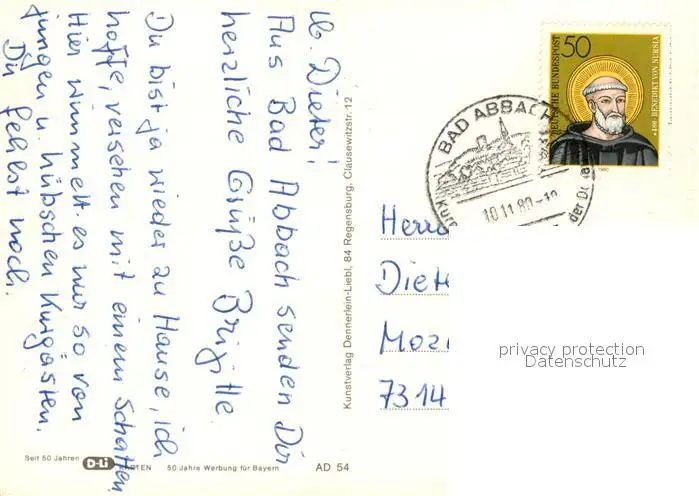 lb. Dieter!
Aus Bad Abbach senden Dir
herzliche Grüße Brigitte
Du bist ja wieder zu Hause, ich
hoffe, versehen mit einem Schatten
Hier wimmelt es nur so von
jungen u. hübschen Kurgästen.
Du fehlst noch.
Kunstverlag Dennerlein-Liebl, 84 Regensburg, Clausewitzstr. 12
Seit 50 Jahren D-Li KARTEN 50 Jahre Werbung für Bayern
AD 54
50
DEUTSCHE BUNDESPOST
*480 · BENEDIKT VON NURSIA
1980
BAD ABBACH
10.11.80-18
der Donau
Herrn
Diet
Moz
7314
privacy protection
Datenschutz